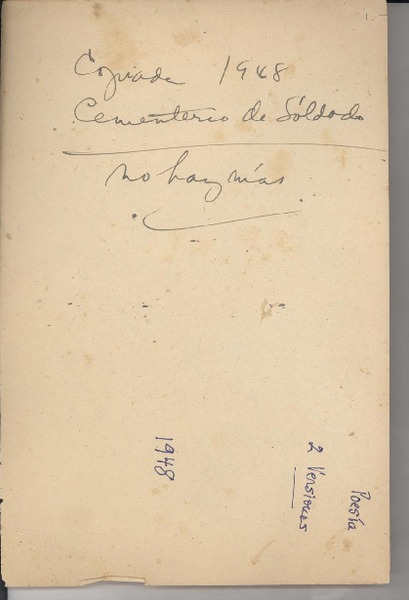 Copiada 1948
Cementerio de Soldado
no hay más
1948
Poesía
2 Versiones